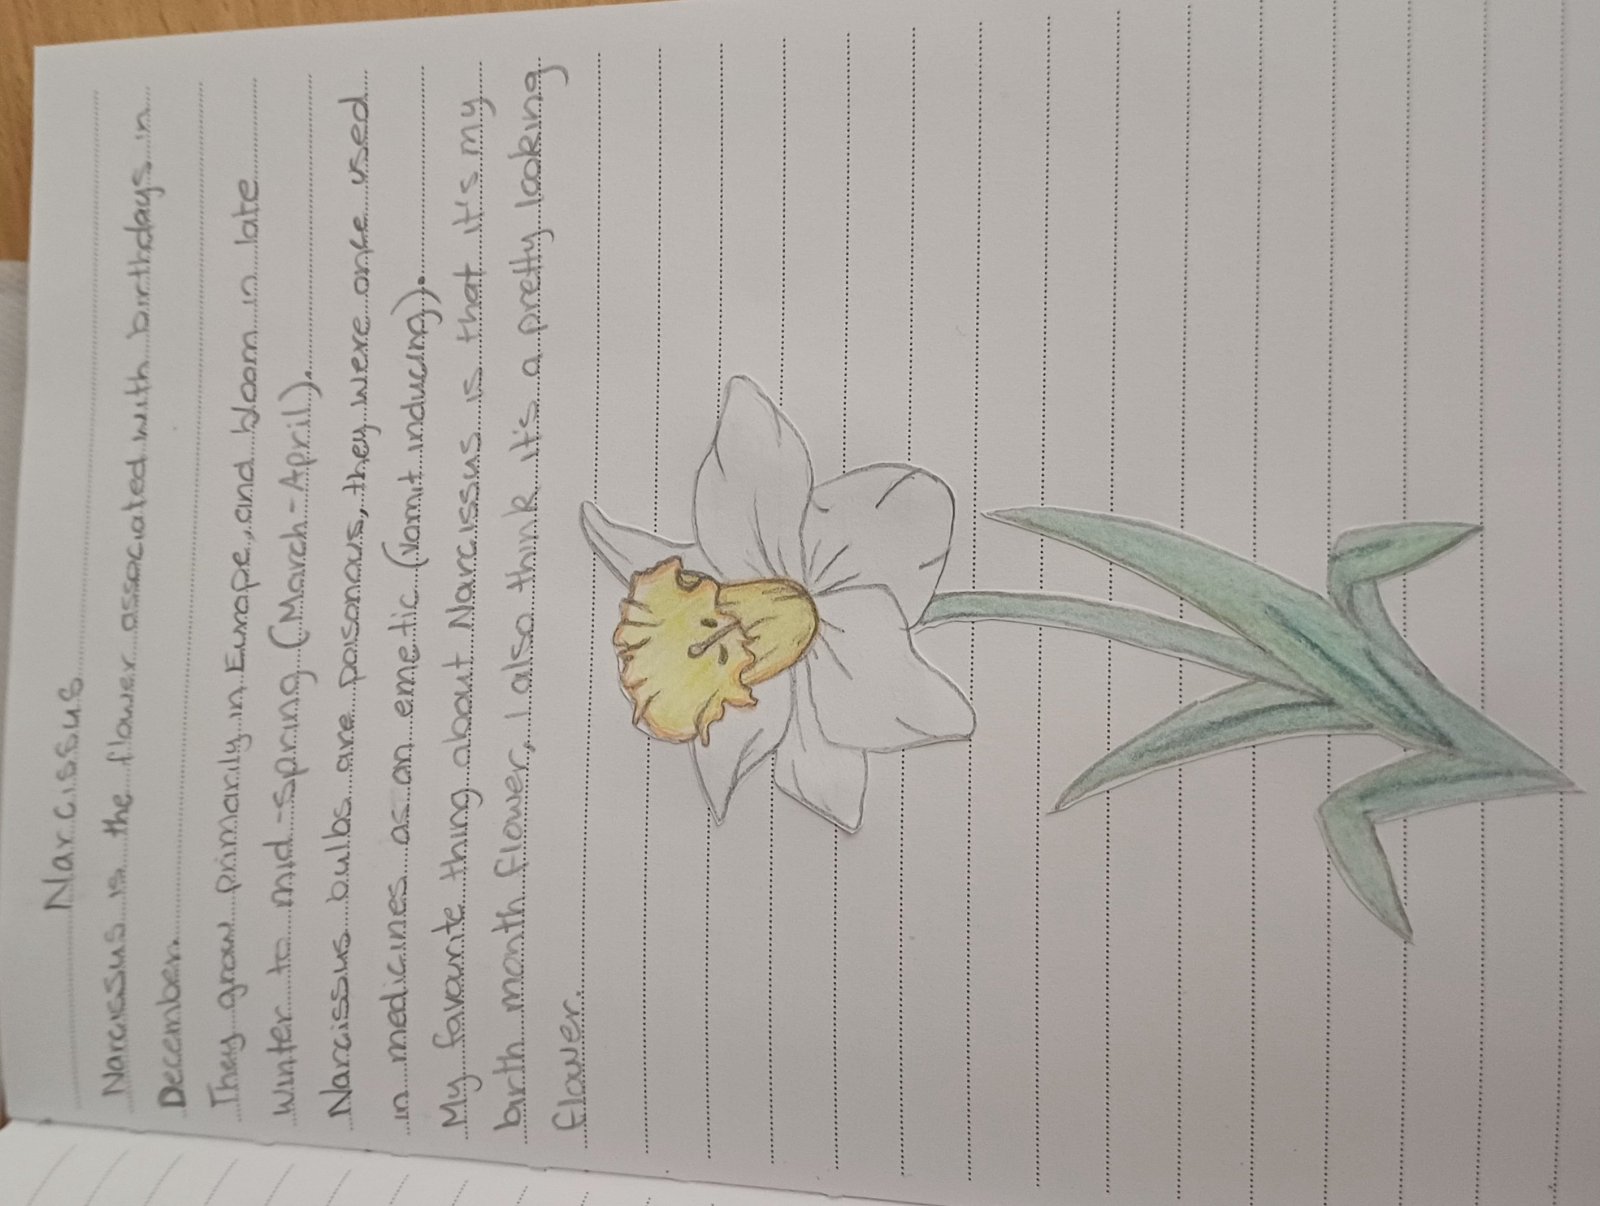 Narcissus
Narcissus is the flower associated with birthdays in
December.
They grow primarily in Europe, and bloom in late
winter to mid-spring (March-April).
Narcissus bulbs are poisonous, they were once used
in medicines as an emetic (vomit inducing).
My favourite thing about Narcissus is that it's my
birth month flower, I also think it's a pretty looking
flower.